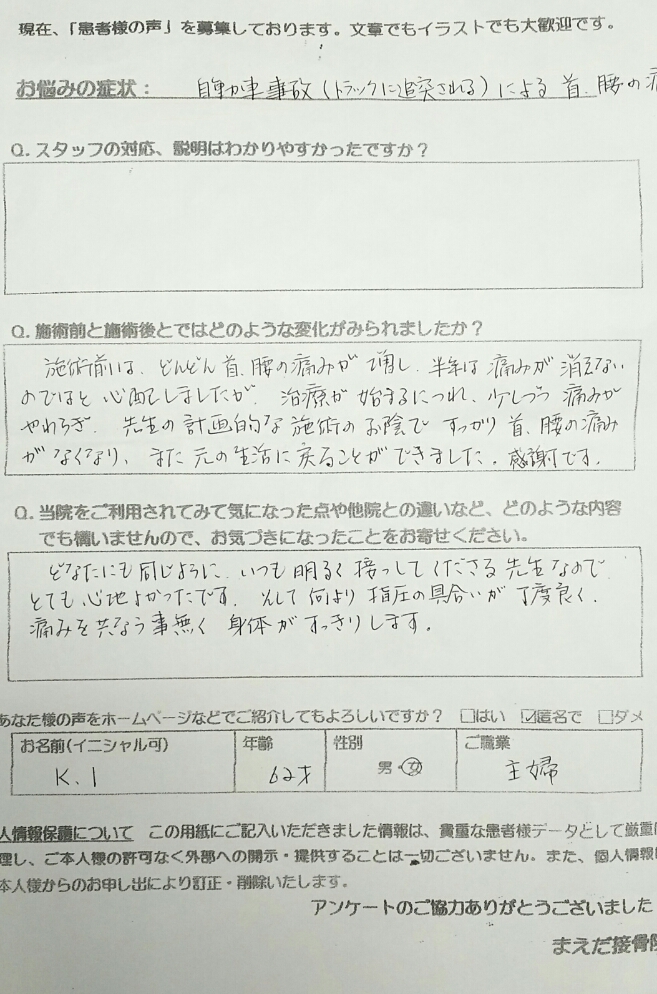 現在、「患者様の声」を募集しております。文章でもイラストでも大歓迎です。
お悩みの症状： 自動車事故(トラックに追突される)による首、腰の
Q. スタッフの対応、説明はわかりやすかったですか？
Q. 施術前と施術後とではどのような変化がみられましたか？
施術前は、どんどん首、腰の痛みが増し、半年は痛みが消えない
のではと心配しましたが、治療が始まるにつれ、少しづつ痛みが
やわらぎ、先生の計画的な施術のお陰ですっかり首、腰の痛み
がなくなり、また元の生活に戻ることができました。感謝です。
Q. 当院をご利用されてみて気になった点や他院との違いなど、どのような内容
でも構いませんので、お気づきになったことをお寄せください。
どなたにも同じように、いつも明るく接っしてくださる先生なので
とても心地よかったです。そして何より指圧の具合いが丁度良く、
痛みを共なう事無く身体がすっきりします。
あなた様の声をホームページなどでご紹介してもよろしいですか？ □はい ☑匿名で □ダメ
お名前(イニシャル可) 年齢 性別 ご職業
K. I 62才 男・女 主婦
人情報保護について この用紙にご記入いただきました情報は、貴重な患者様データとして厳重に
理し、ご本人様の許可なく外部への開示・提供することは一切ございません。また、個人情報は
本人様からのお申し出により訂正・削除いたします。
アンケートのご協力ありがとうございました
まえだ接骨院